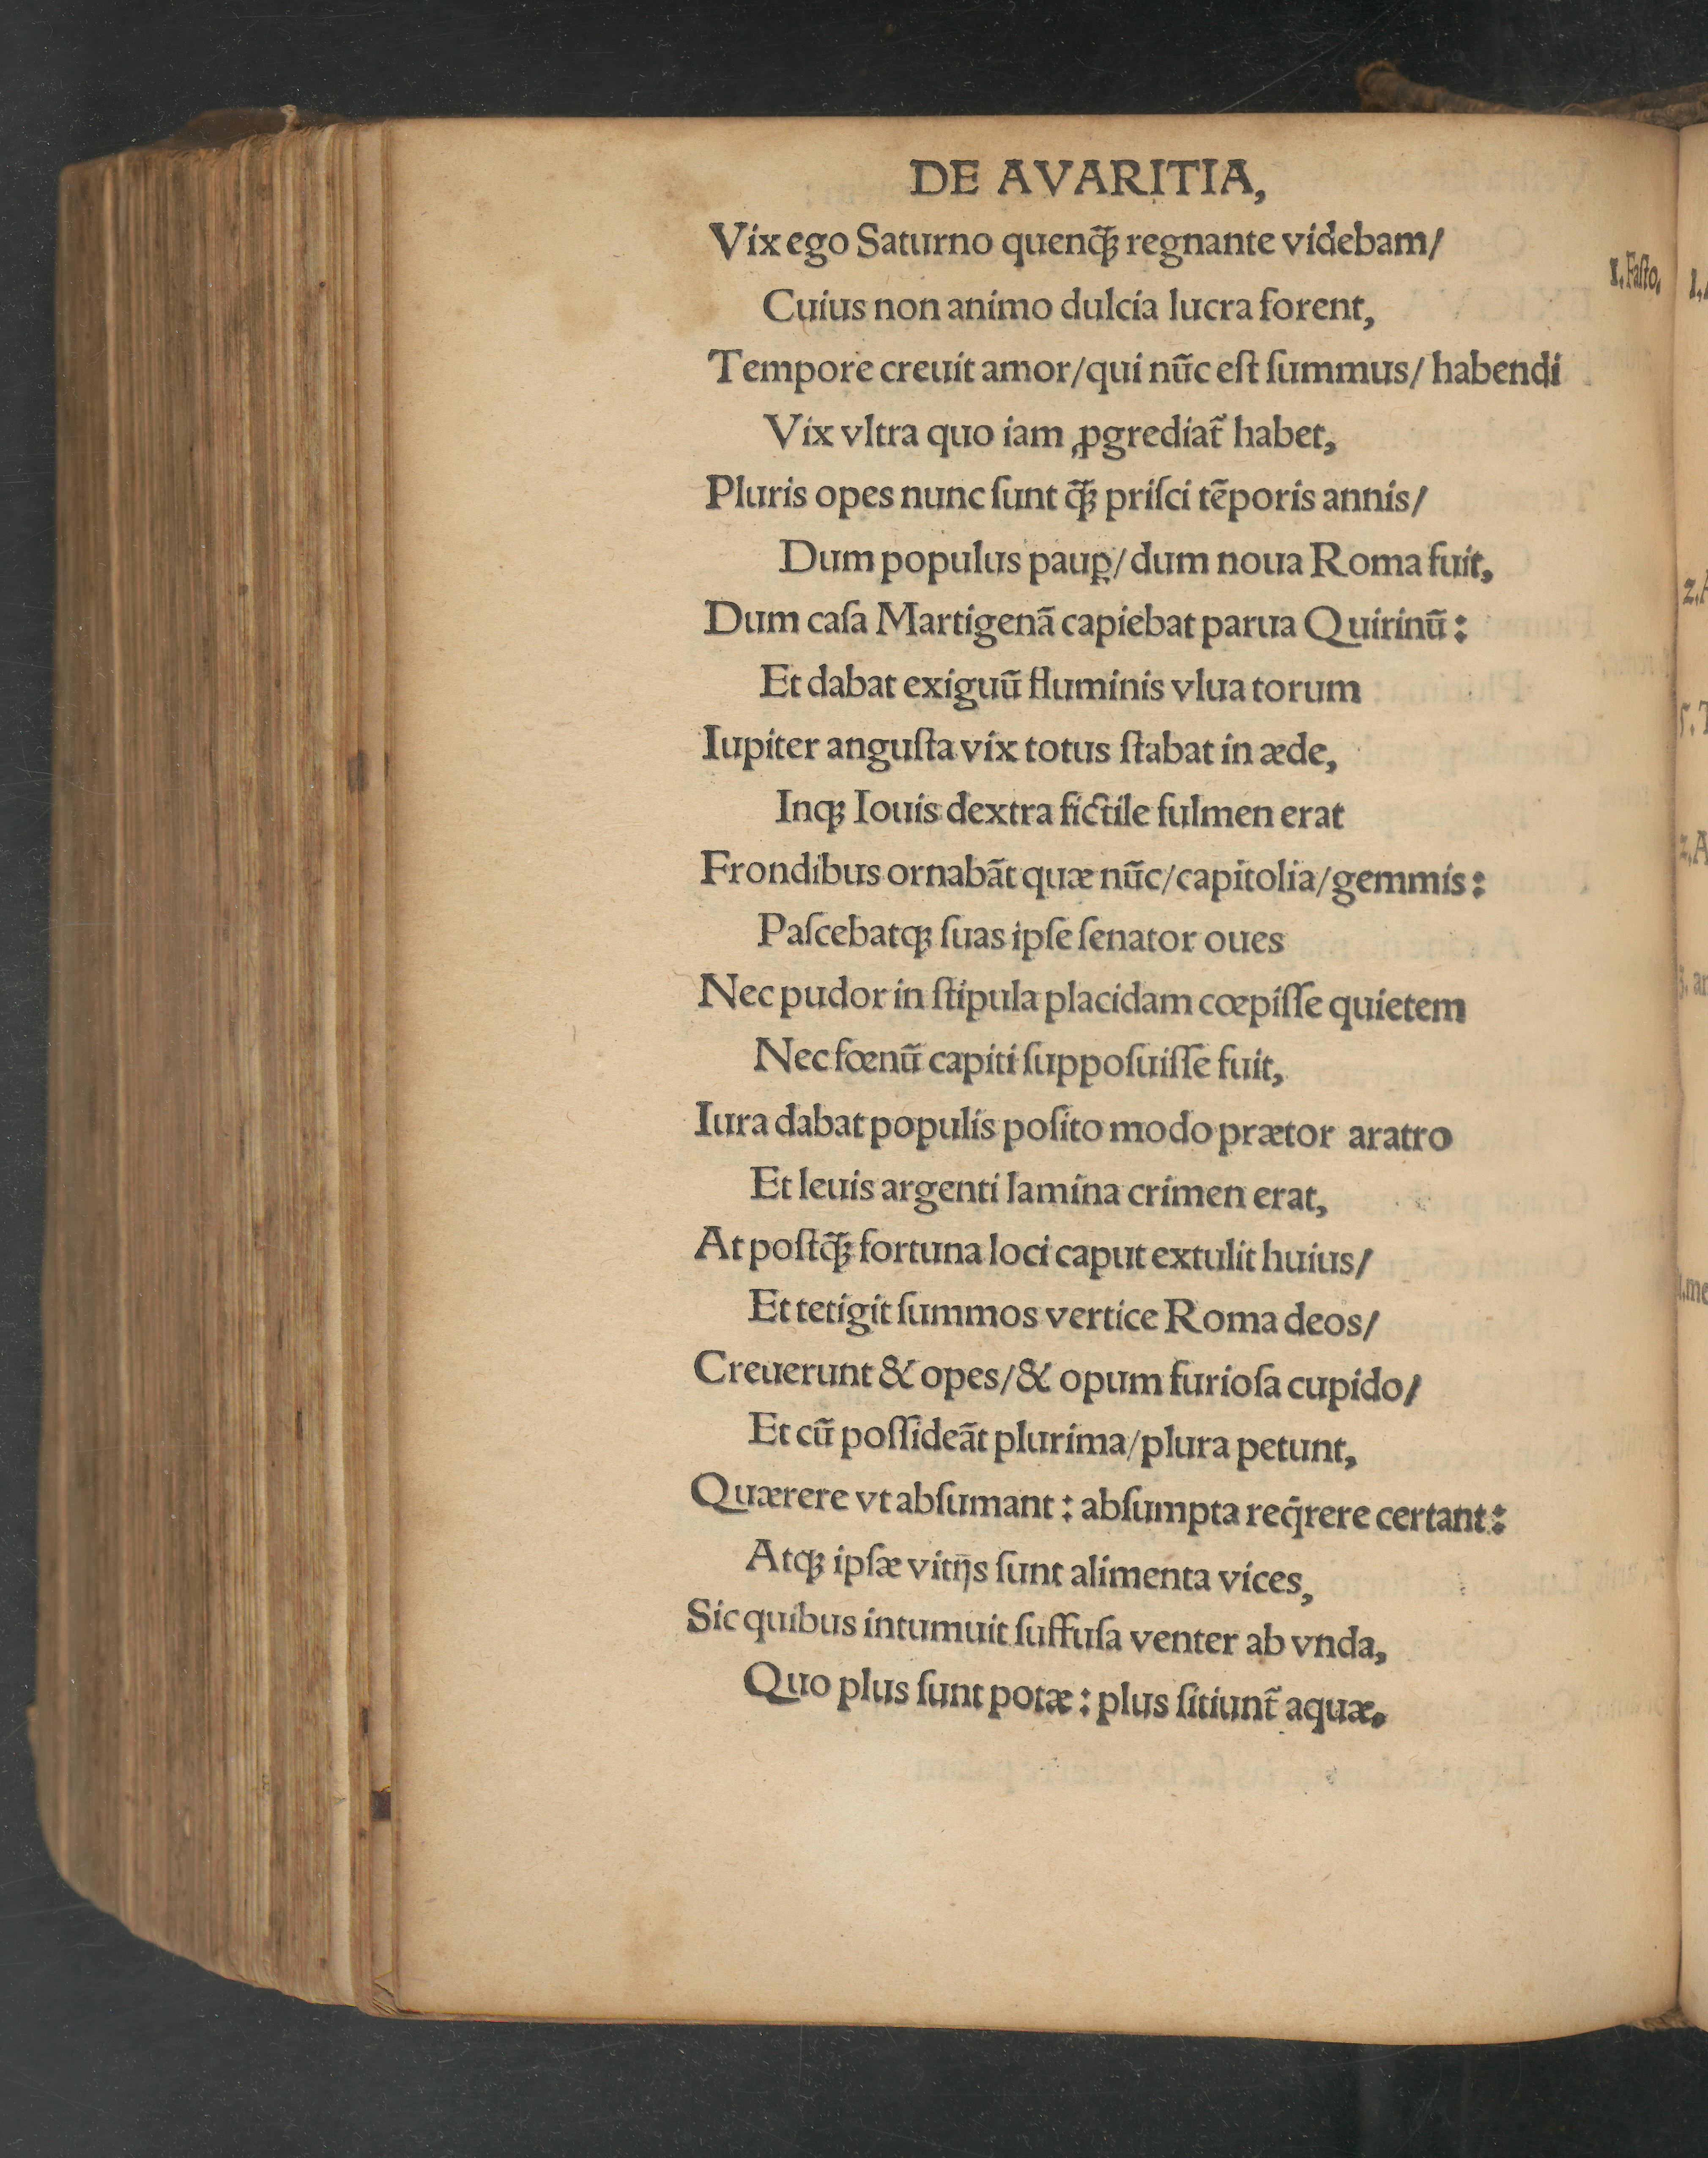 DE AVARITIA,
Vix ego Saturno quenq̃ꝫ regnante videbam/
1. Faſto.
Cuius non animo dulcia lucra forent,
Tempore creuit amor/qui nũc eſt ſummus/ habendi
Vix vltra quo iam ꝓgrediat᷑ habet,
Pluris opes nunc ſunt q̃ꝫ priſci tẽporis annis/
Dum populus paup̱/dum noua Roma fuit,
Dum caſa Martigenã capiebat parua Quirinũ:
Et dabat exiguũ fluminis vlua torum
Iupiter anguſta vix totus ſtabat in æde,
Inqꝫ Iouis dextra fictile fulmen erat
Frondibus ornabãt quæ nũc/capitolia/gemmis:
Paſcebatqꝫ ſuas ipſe ſenator oues
Nec pudor in ſtipula placidam cœpiſſe quietem
Nec fœnũ capiti ſuppoſuiſſe fuit,
Iura dabat populis poſito modo prætor aratro
Et leuis argenti lamina crimen erat,
At poſtq̃ꝫ fortuna loci caput extulit huius/
Et tetigit ſummos vertice Roma deos/
Creuerunt & opes/& opum furioſa cupido/
Et cũ poſſideãt plurima/plura petunt,
Quærere vt abſumant: abſumpta req̄rere certant:
Atqꝫ ipſæ vitijs ſunt alimenta vices,
Sic quibus intumuit ſuffuſa venter ab vnda,
Quo plus ſunt potæ: plus ſitiunt᷑ aquæ.